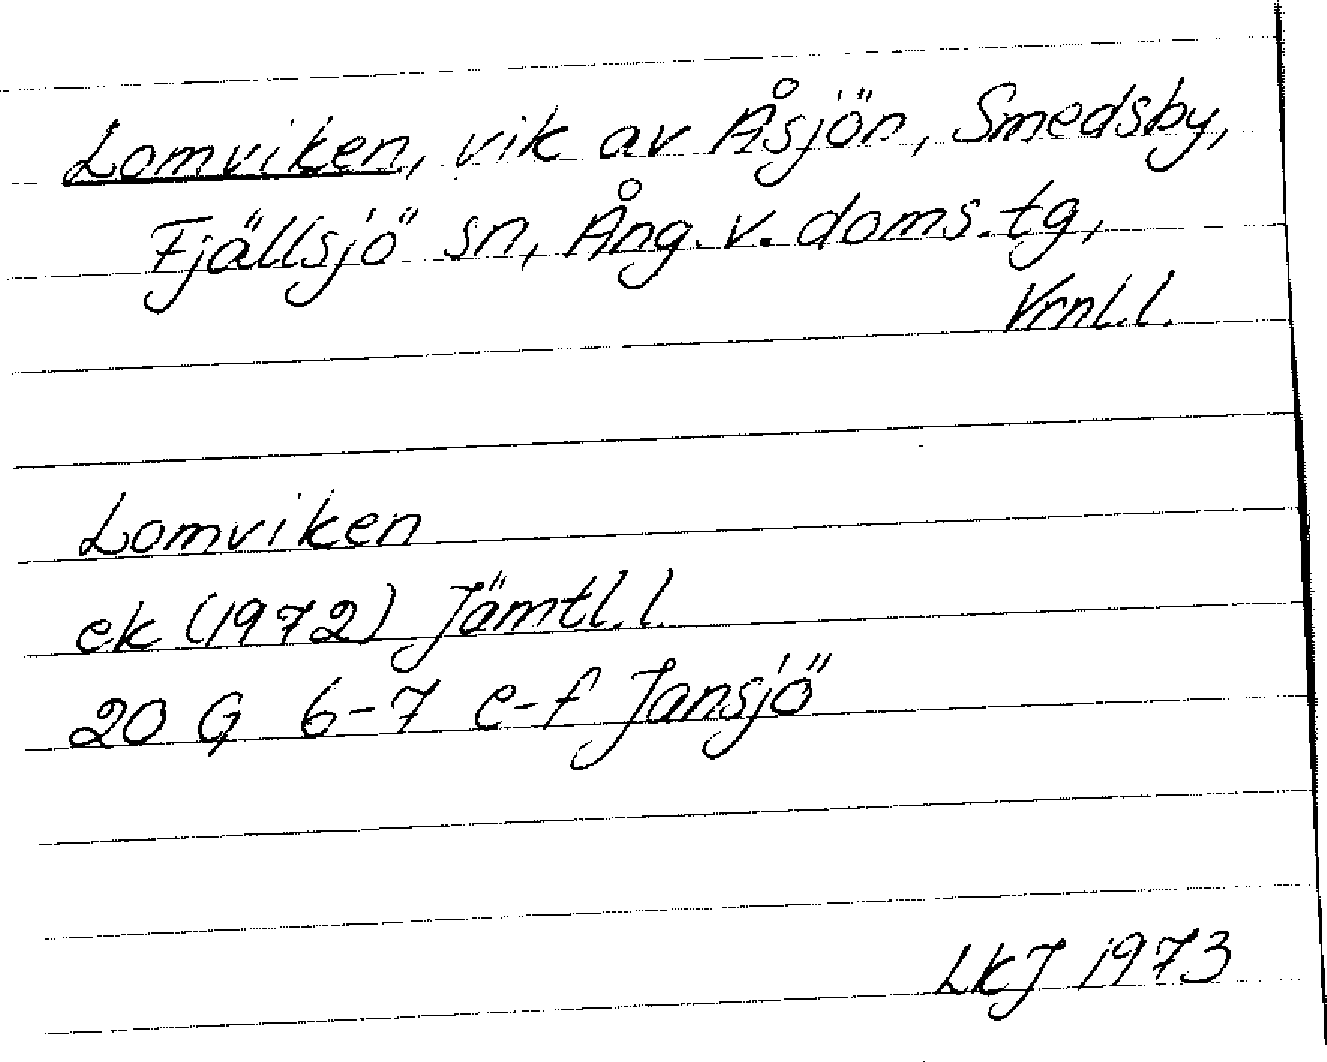 Lomviken, vik av Åsjön, Smedsby,
Fjällsjö sn, Ång. v. doms. tg,
Vrnl. l.
Lomviken
ek (1972) Jämtl. l.
20 G 6-7 e-f Jansjö
LKJ 1973